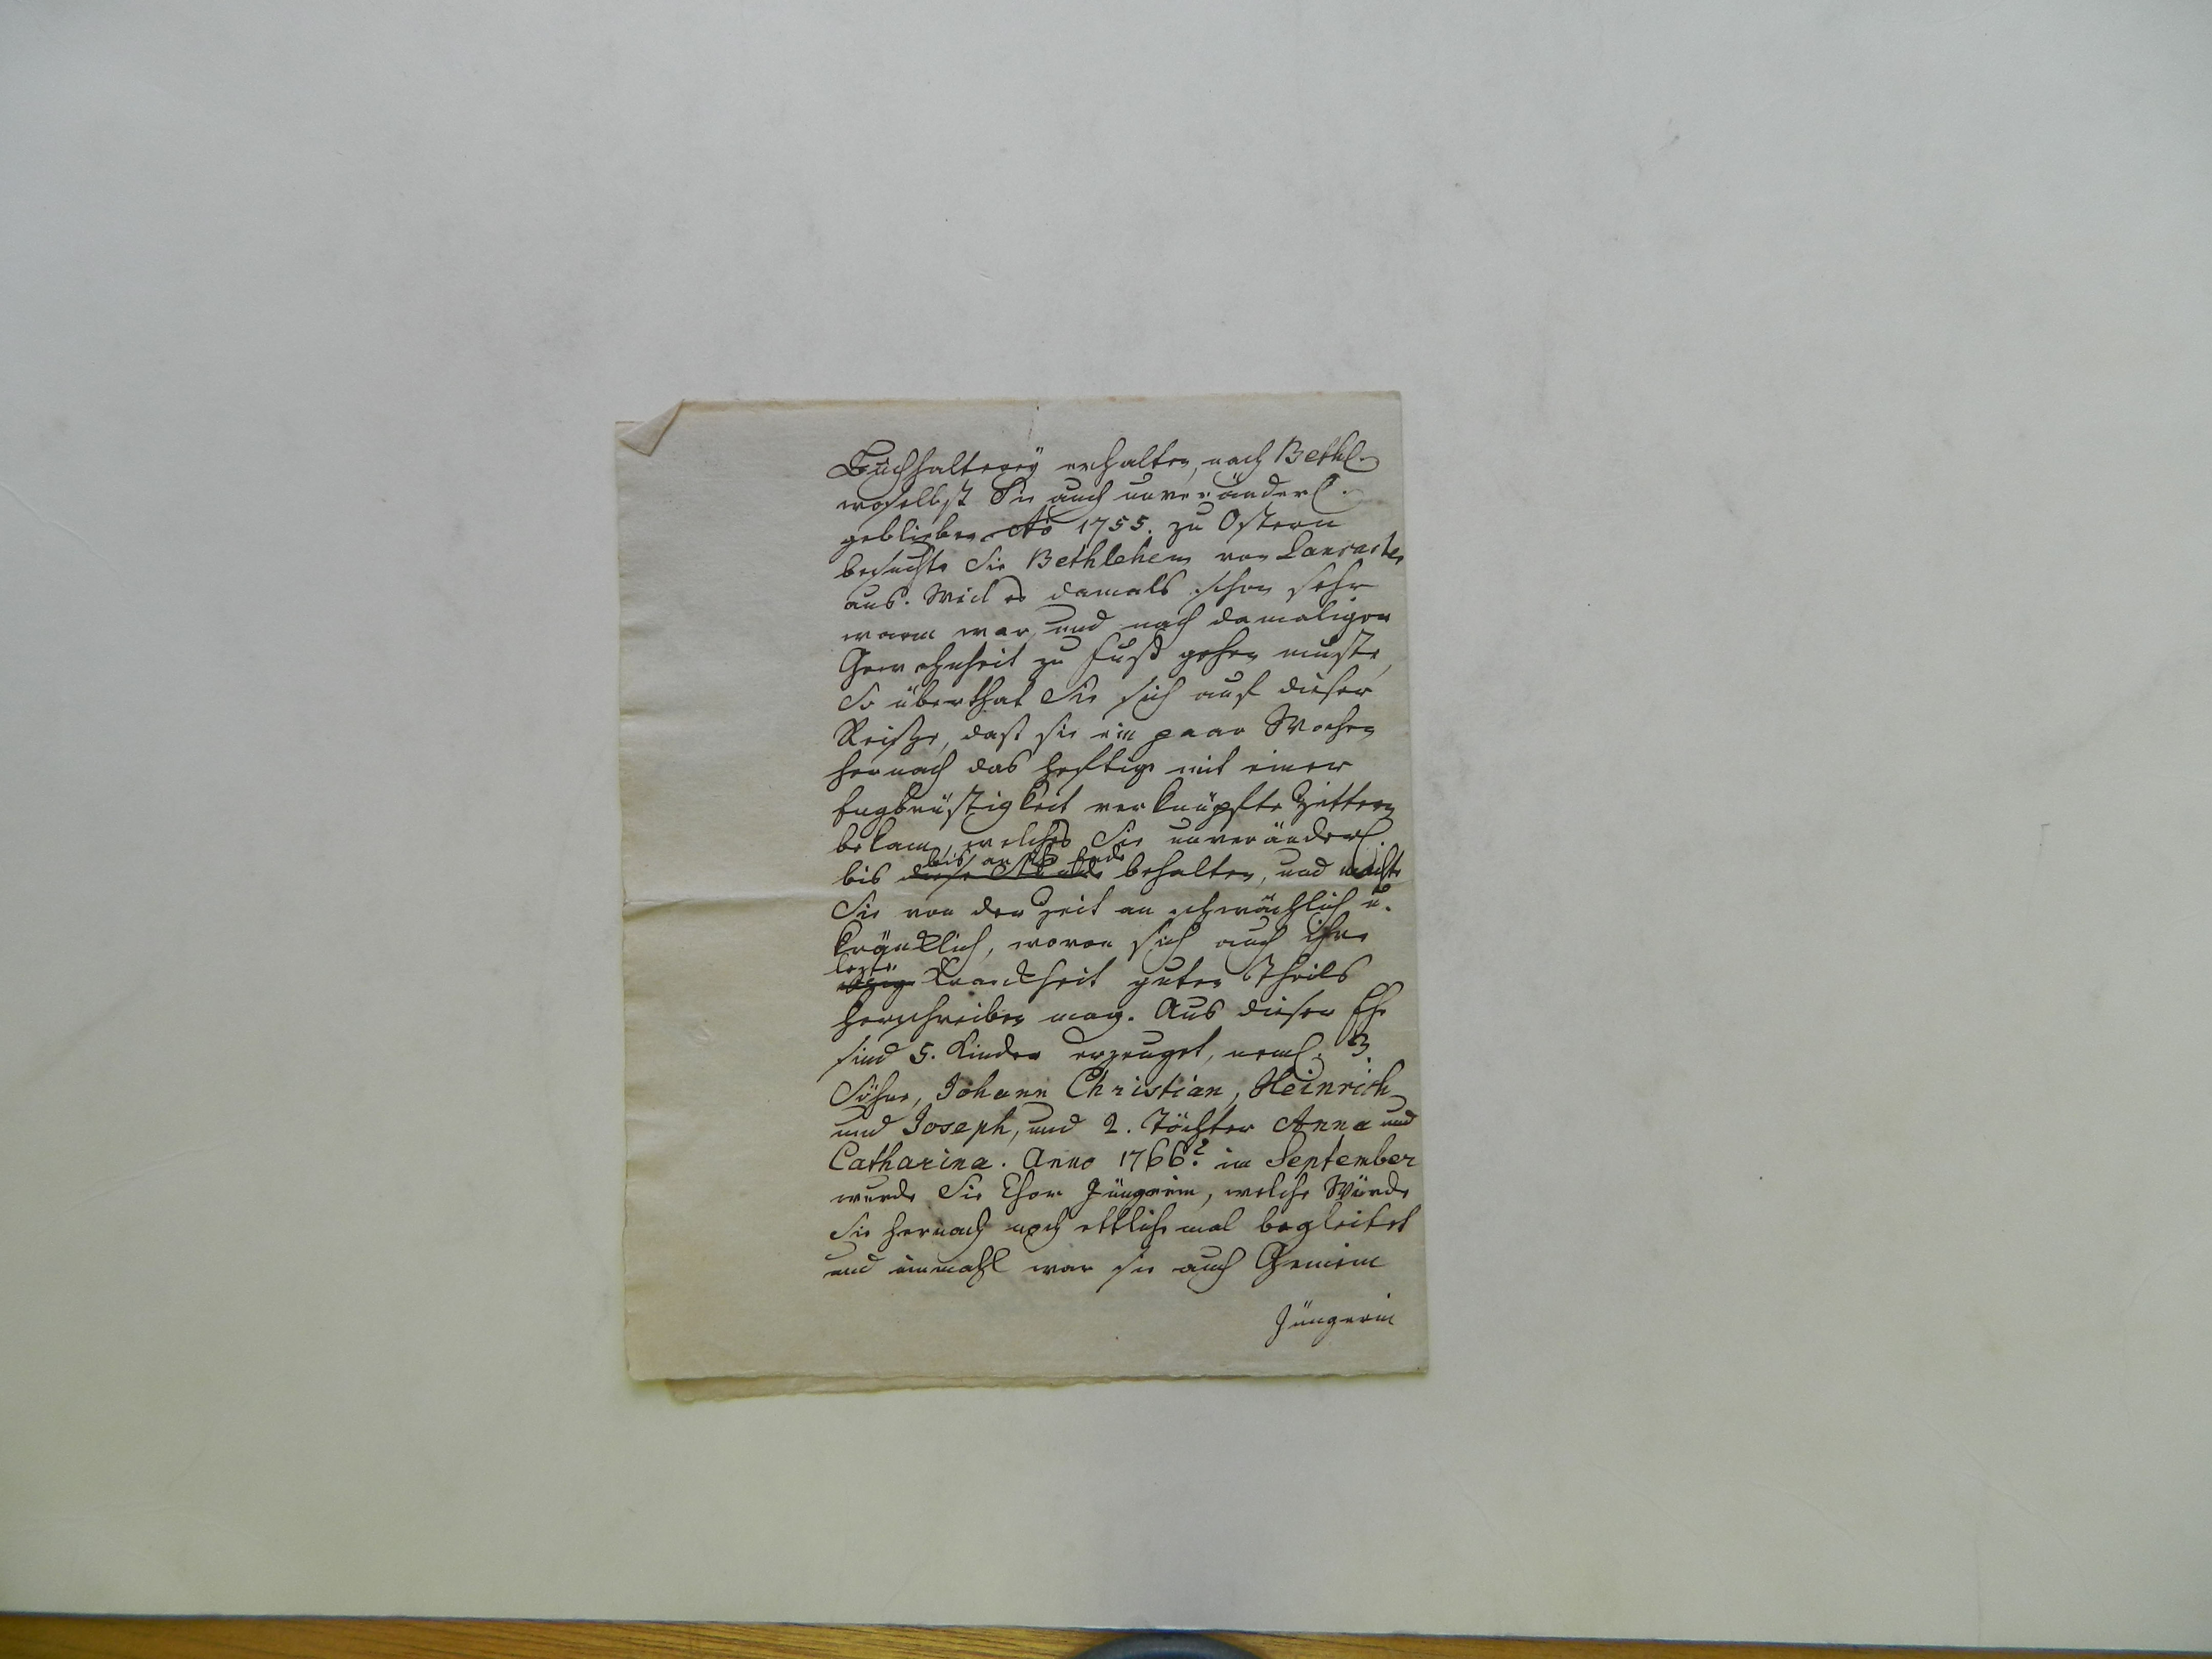 Buchhalterey erhalten, nach Bethl.
woselbst Sie auch unveränderl.
geblieben. Ao 1755. zu Ostern
besuchte Sie Bethlehem von Lancaster
aus. Weil es damals schon sehr
warm war, und nach damaliger
Gewohnheit zu Fuß gehen muste,
So überthat Sie sich auf dieser
Reiße, daß sie ein paar Wochen
hernach das heftige mit einer
Engbrüstigkeit verknüpfte Zittern
bekam, welches Sie unveränderl.
bis an ihr Ende
bis diese Stunde behalten, und machte
Sie von der Zeit an schwächlich u.
kränklich, wovon sich auch ihre
lezte
Kranckheit guten Theils
herschreiben mag. Aus dieser Ehe
sind 5. Kinder erzeuget, neml. 3
Söhne, Johann Christian, Heinrich
und Joseph, und 2. Töchter Anna und
Catharina. Anno 1766? im September
wurde Sie Chor Jüngerin, welche Würde
Sie hernach noch ettliche mal begleitet
und einmahl war sie auch Gemein
Jüngerin